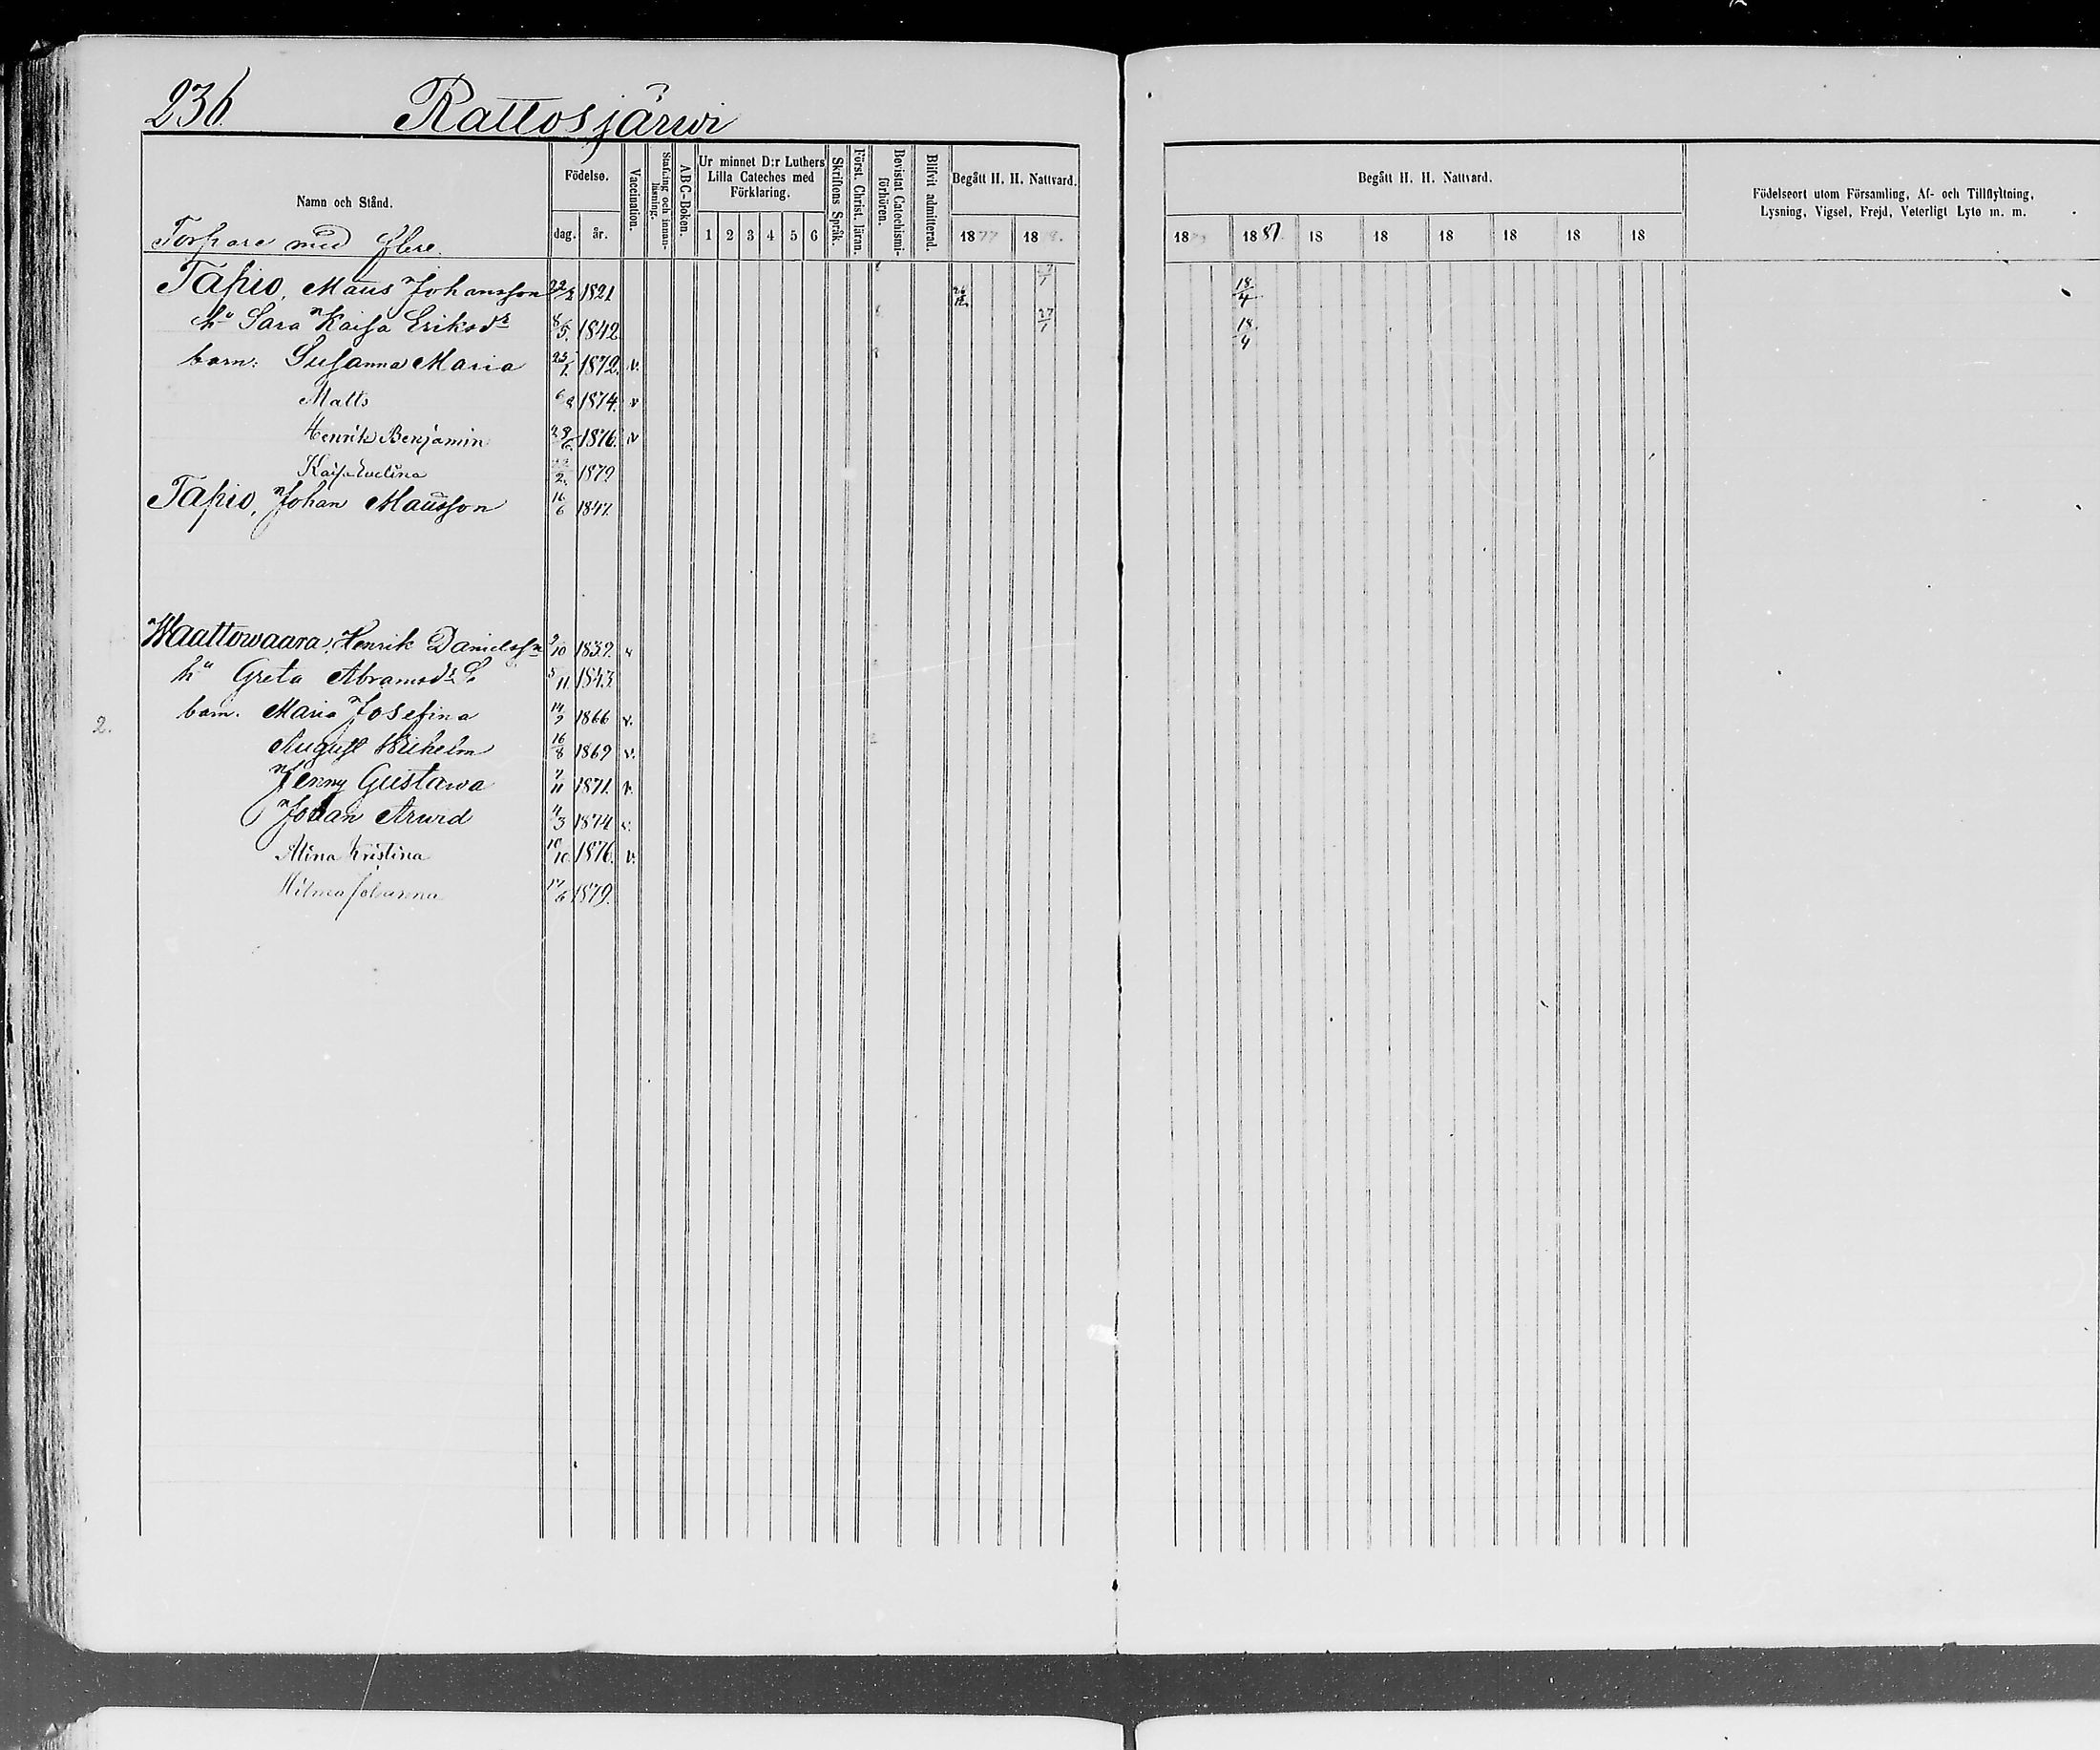 236.
Rattosjärwi
Namn och Stånd. Födelse. Vaccination. Stafning och innanläsning. A B C-Boken. Ur minnet D:r Luthers Lilla Cateches med Förklaring. Skriftens Språk. Först. Christ. läran. Bevistat Catechismiförhören. Blifvit admitterad. Begått H. H. Nattvard. Begått H. H. Nattvard. Födelseort utom Församling, Af- och Tillflyttning, Lysning, Vigsel, Frejd, Veterligt Lyte m. m.
dag. år. 1 2 3 4 5 6 1877 1878. 1879 1881. 18 18 18 18 18 18
Torpare med flere.
Tapio, Maus Johansson 22/2 1821 27/1 18/4
hu Sara Kaisa Eriksdr 8/5. 1842 27/1 18/4
barn: Susanna Maria 25/1. 1872. v.
Matts 1874. v
Henrik Benjamin 28/6. 1876. v
Kaisa Evelina 1879
Tapio, Johan Mausson 16/6 1847.
Waattowaara, Henrik Danielssn 9/10 1839. v
hu Greta Abramsdr 5/11 1843.
2. barn. Maria Josefina 14/9 1866 v.
August Wilhelm 16/8 1869 v.
Jenny Gustawa 7/11 1871. v.
Johan Arwid 4/3 1874 v.
Alina Kristina 10/10 1876. v.
Hilma Johanna 17/6 1879.